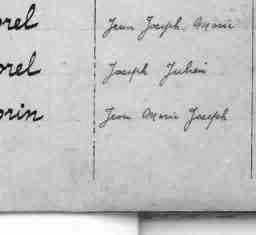 orel Jean Joseph Marie
orel Joseph Julien
orin Jean Marie Joseph